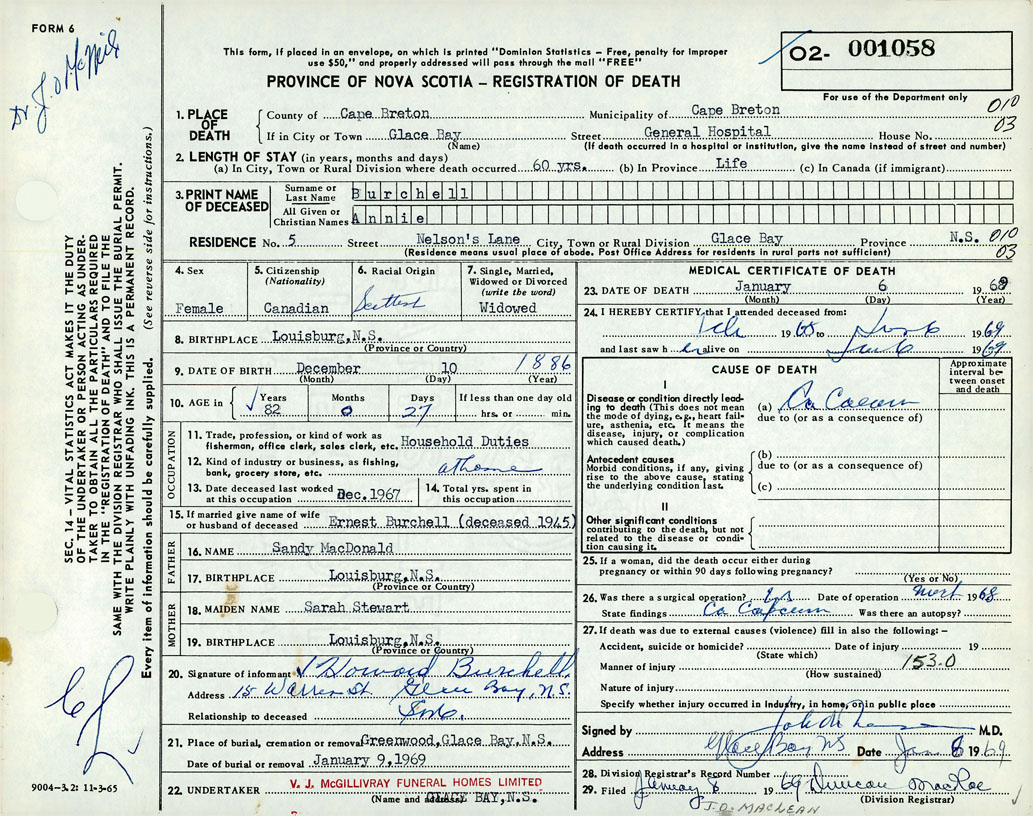 FORM 6
Dr. J. O. McNeil
This form, if placed in an envelope, on which is printed "Dominion Statistics – Free, penalty for improper
use $50," and properly addressed will pass through the mail "FREE"
PROVINCE OF NOVA SCOTIA – REGISTRATION OF DEATH
02- 001058
For use of the Department only
010
03
1. PLACE OF DEATH
County of Cape Breton Municipality of Cape Breton
If in City or Town Glace Bay Street General Hospital House No.
(Name) (If death occurred in a hospital or institution, give the name instead of street and number)
2. LENGTH OF STAY (in years, months and days)
(a) In City, Town or Rural Division where death occurred 60 yrs. (b) In Province Life (c) In Canada (if immigrant)
3. PRINT NAME OF DECEASED
Surname or Last Name Burchell
All Given or Christian Names Annie
RESIDENCE No. 5 Street Nelson's Lane City, Town or Rural Division Glace Bay Province N.S. 010
(Residence means usual place of abode. Post Office Address for residents in rural parts not sufficient) 03
4. Sex
Female
5. Citizenship
(Nationality)
Canadian
6. Racial Origin
Scottish
7. Single, Married,
Widowed or Divorced
(write the word)
Widowed
8. BIRTHPLACE Louisburg, N.S.
(Province or Country)
9. DATE OF BIRTH December 10 1886
(Month) (Day) (Year)
10. AGE in
Years Months Days If less than one day old
82 0 27 hrs. or min.
OCCUPATION
11. Trade, profession, or kind of work as
fisherman, office clerk, sales clerk, etc. Household Duties
12. Kind of industry or business, as fishing,
bank, grocery store, etc. at home
13. Date deceased last worked
at this occupation Dec. 1967
14. Total yrs. spent in
this occupation
15. If married give name of wife
or husband of deceased Ernest Burchell (deceased 1945)
FATHER
16. NAME Sandy MacDonald
17. BIRTHPLACE Louisburg, N.S.
(Province or Country)
MOTHER
18. MAIDEN NAME Sarah Stewart
19. BIRTHPLACE Louisburg, N.S.
(Province or Country)
20. Signature of informant Howard Burchell
Address 15 Warren St Glace Bay, N.S.
Relationship to deceased Son.
21. Place of burial, cremation or removal Greenwood, Glace Bay, N.S.
Date of burial or removal January 9, 1969
22. UNDERTAKER V. J. McGILLIVRAY FUNERAL HOMES LIMITED
(Name and address) GLACE BAY, N.S.
MEDICAL CERTIFICATE OF DEATH
23. DATE OF DEATH January 6 1969
(Month) (Day) (Year)
24. I HEREBY CERTIFY that I attended deceased from:
Feb 1968 to Jan 6 1969
and last saw her alive on Jan 6 1969
CAUSE OF DEATH
Approximate
interval be-
tween onset
and death
I
Disease or condition directly lead-
ing to death (This does not mean
the mode of dying, e.g., heart fail-
ure, asthenia, etc. It means the
disease, injury, or complication
which caused death.)
(a) Ca Caecum
due to (or as a consequence of)
Antecedent causes
Morbid conditions, if any, giving
rise to the above cause, stating
the underlying condition last.
(b)
due to (or as a consequence of)
(c)
II
Other significant conditions
contributing to the death, but not
related to the disease or condi-
tion causing it.
25. If a woman, did the death occur either during
pregnancy or within 90 days following pregnancy?
(Yes or No)
26. Was there a surgical operation? Yes Date of operation 1968
State findings Ca Caecum Was there an autopsy?
27. If death was due to external causes (violence) fill in also the following: –
Accident, suicide or homicide? Date of injury 19
(State which)
Manner of injury 153.0
(How sustained)
Nature of injury
Specify whether injury occurred in industry, in home, or in public place
Signed by M.D.
Address Glace Bay NS Date Jan 8 1969
28. Division Registrar's Record Number
29. Filed January 8 1969 Duncan MacRae
(Division Registrar)
J.O. MACLEAN
SEC. 14 – VITAL STATISTICS ACT MAKES IT THE DUTY
OF THE UNDERTAKER OR PERSON ACTING AS UNDER-
TAKER TO OBTAIN ALL THE PARTICULARS REQUIRED
IN THE "REGISTRATION OF DEATH" AND TO FILE THE
SAME WITH THE DIVISION REGISTRAR WHO SHALL ISSUE THE BURIAL PERMIT.
WRITE PLAINLY WITH UNFADING INK. THIS IS A PERMANENT RECORD.
Every item of information should be carefully supplied. (See reverse side for instructions.)
9004-3.2: 11-3-65